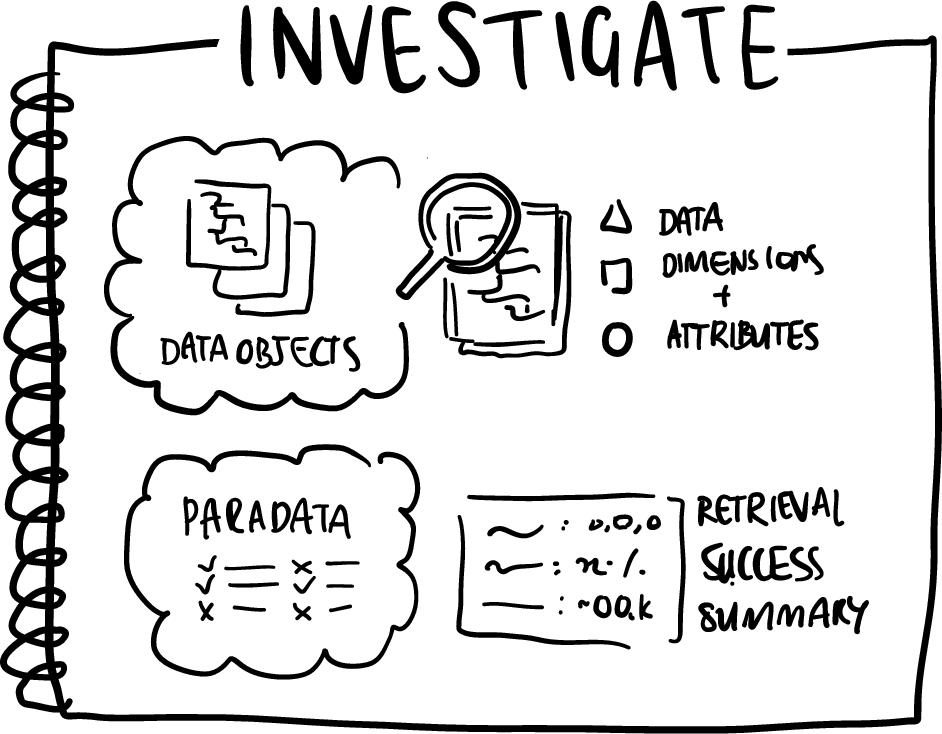 INVESTIGATE
DATA OBJECTS
DATA
DIMENSIONS
+
ATTRIBUTES
PARADATA
: 0,0,0
: n·/.
: ~00.k
RETRIEVAL
SUCCESS
SUMMARY